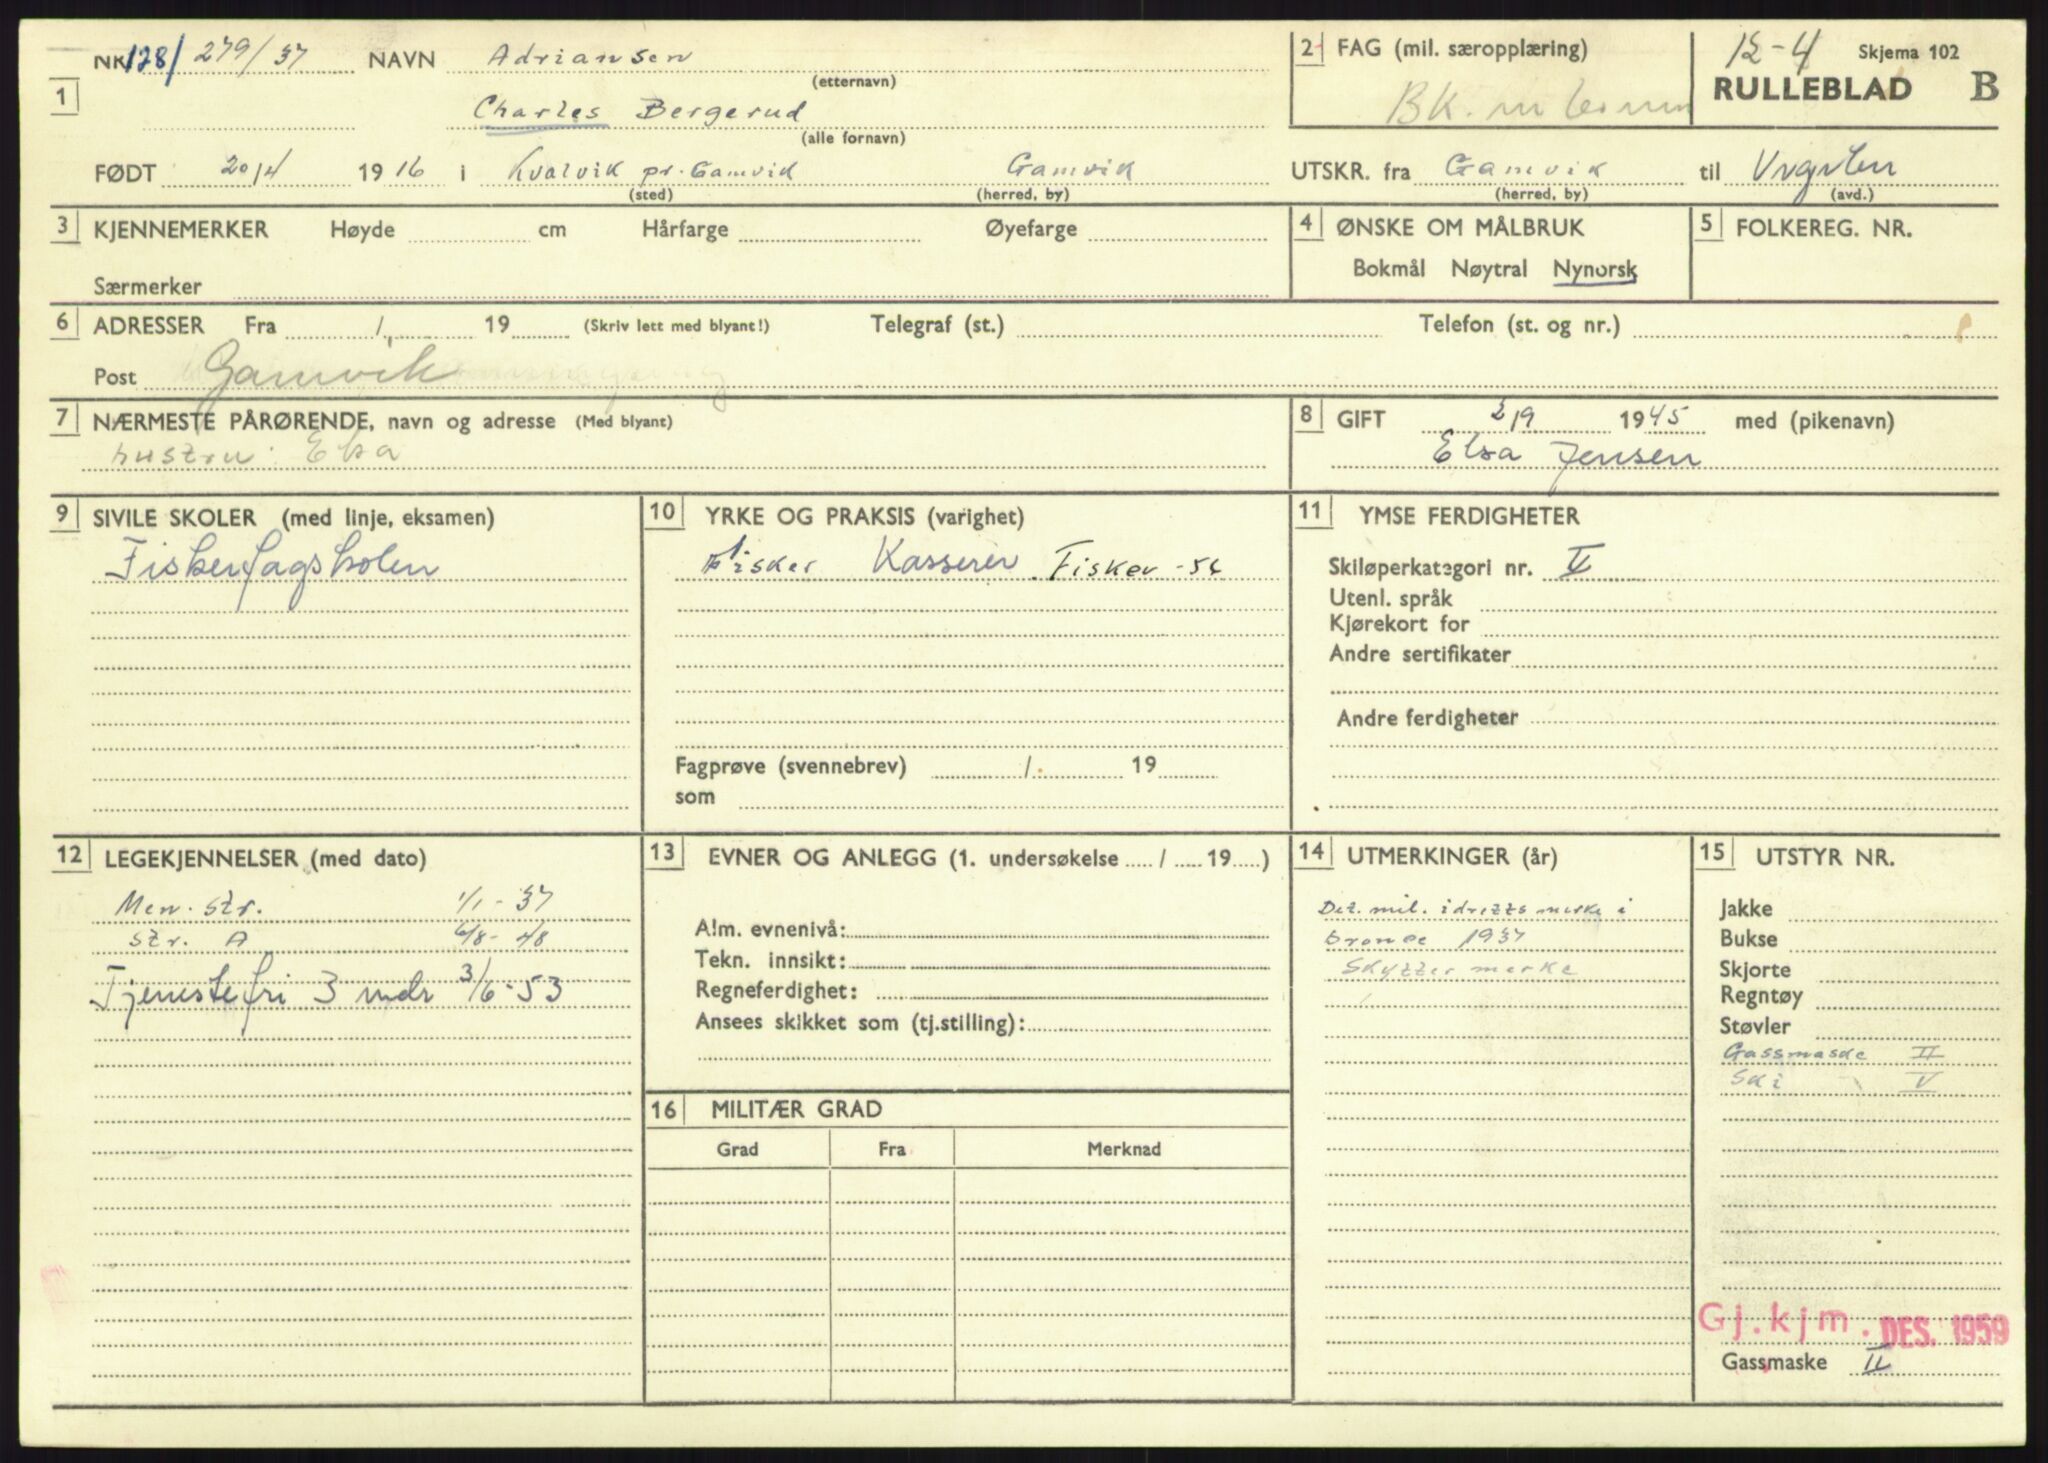 NR 128/ 279/37 NAVN Adriansen
(etternavn)
1
Charles Bergerud
(alle fornavn)
FØDT 20/4 1916 i Kvalvik pr. Gamvik Gamvik
(sted) (herred, by)
2 FAG (mil. særopplæring)
BK.
12-4 Skjema 102
RULLEBLAD B
UTSKR. fra Gamvik til
(herred, by) (avd.)
3 KJENNEMERKER Høyde cm Hårfarge Øyefarge
Særmerker
4 ØNSKE OM MÅLBRUK
Bokmål Nøytral Nynorsk
5 FOLKEREG. NR.
6 ADRESSER Fra / 19 (Skriv lett med blyant!) Telegraf (st.) Telefon (st. og nr.)
Post Gamvik
7 NÆRMESTE PÅRØRENDE, navn og adresse (Med blyant)
hustru: Elsa
8 GIFT 2/9 1945 med (pikenavn)
Elsa Jensen
9 SIVILE SKOLER (med linje, eksamen)
Fiskerfagskolen
10 YRKE OG PRAKSIS (varighet)
Fisker Kasserer Fisker -56
Fagprøve (svennebrev) / 19
som
11 YMSE FERDIGHETER
Skiløperkategori nr. V
Utenl. språk
Kjørekort for
Andre sertifikater
Andre ferdigheter
12 LEGEKJENNELSER (med dato)
Men. str. 1/1-37
Str. A 6/8-48
Tjenestefri 3 mdr 3/6-53
13 EVNER OG ANLEGG (1. undersøkelse / 19 )
Alm. evnenivå:
Tekn. innsikt:
Regneferdighet:
Ansees skikket som (tj.stilling):
16 MILITÆR GRAD
Grad Fra Merknad
14 UTMERKINGER (år)
Det. mil. idrettsmerke i
bronse 1937
Skyttermerke
15 UTSTYR NR.
Jakke
Bukse
Skjorte
Regntøy
Støvler
Gassmaske II
Ski V
Gj.kjm. DES. 1959
Gassmaske II